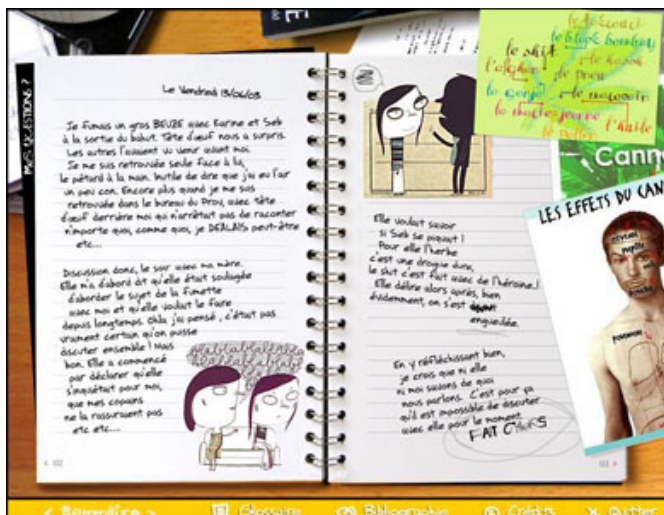 MES QUESTIONS ?
Le Vendredi 13/06/03
Je fumais un gros BEUZE avec Karine et Seb
à la sortie du bahut. Tête d'œuf nous a surpris.
Les autres l'avaient vu venir avant moi.
Je me suis retrouvée seule face à lui,
le pétard à la main. Inutile de dire que j'ai eu l'air
un peu con. Encore plus quand je me suis
retrouvée dans le bureau du Prov, avec tête
d'œuf derrière moi qui n'arrêtait pas de raconter
n'importe quoi, comme quoi, je DEALAIS peut-être
etc...
Discussion donc, le soir avec ma mère.
Elle m'a d'abord dit qu'elle était soulagée
d'aborder le sujet de la fumette
avec moi et qu'elle voulait le faire
depuis longtemps. Ohla, j'ai pensé, c'était pas
vraiment certain qu'on puisse
discuter ensemble ! Mais
bon. Elle a commencé
par déclarer qu'elle
s'inquiétait pour moi,
que mes copains
ne la rassuraient pas
etc etc...
< 02
Elle voulait savoir
si Seb se piquait !
Pour elle l'herbe
c'est une drogue dure,
le shit c'est fait avec de l'héroïne..!
Elle délire alors après, bien
évidemment, on s'est
engueulée.
En y réfléchissant bien,
je crois que ni elle
ni moi savons de quoi
nous parlons. C'est pour ça
qu'il est impossible de discuter
avec elle pour le moment.
FAIT CHIERS
03 >
le black bombay
le shit
l'afghan
le pneu
le marocain
la ganja
la marie-jeanne
l'huile
Cann
LES EFFETS DU CAN
cerveau
pupille
bouche
poumons
< Sommaire >
Glossaire
Bibliographie
Crédits
× Quitter